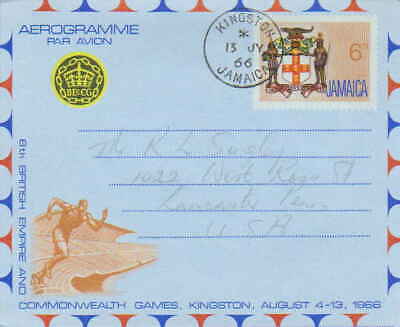 AEROGRAMME
PAR AVION
BE&CG
KINGSTON
13 JY
66
JAMAICA
6D
JAMAICA
The K L
1022 West
Lancaster Penn
U S A
8th BRITISH EMPIRE AND
COMMONWEALTH GAMES, KINGSTON, AUGUST 4-13, 1966